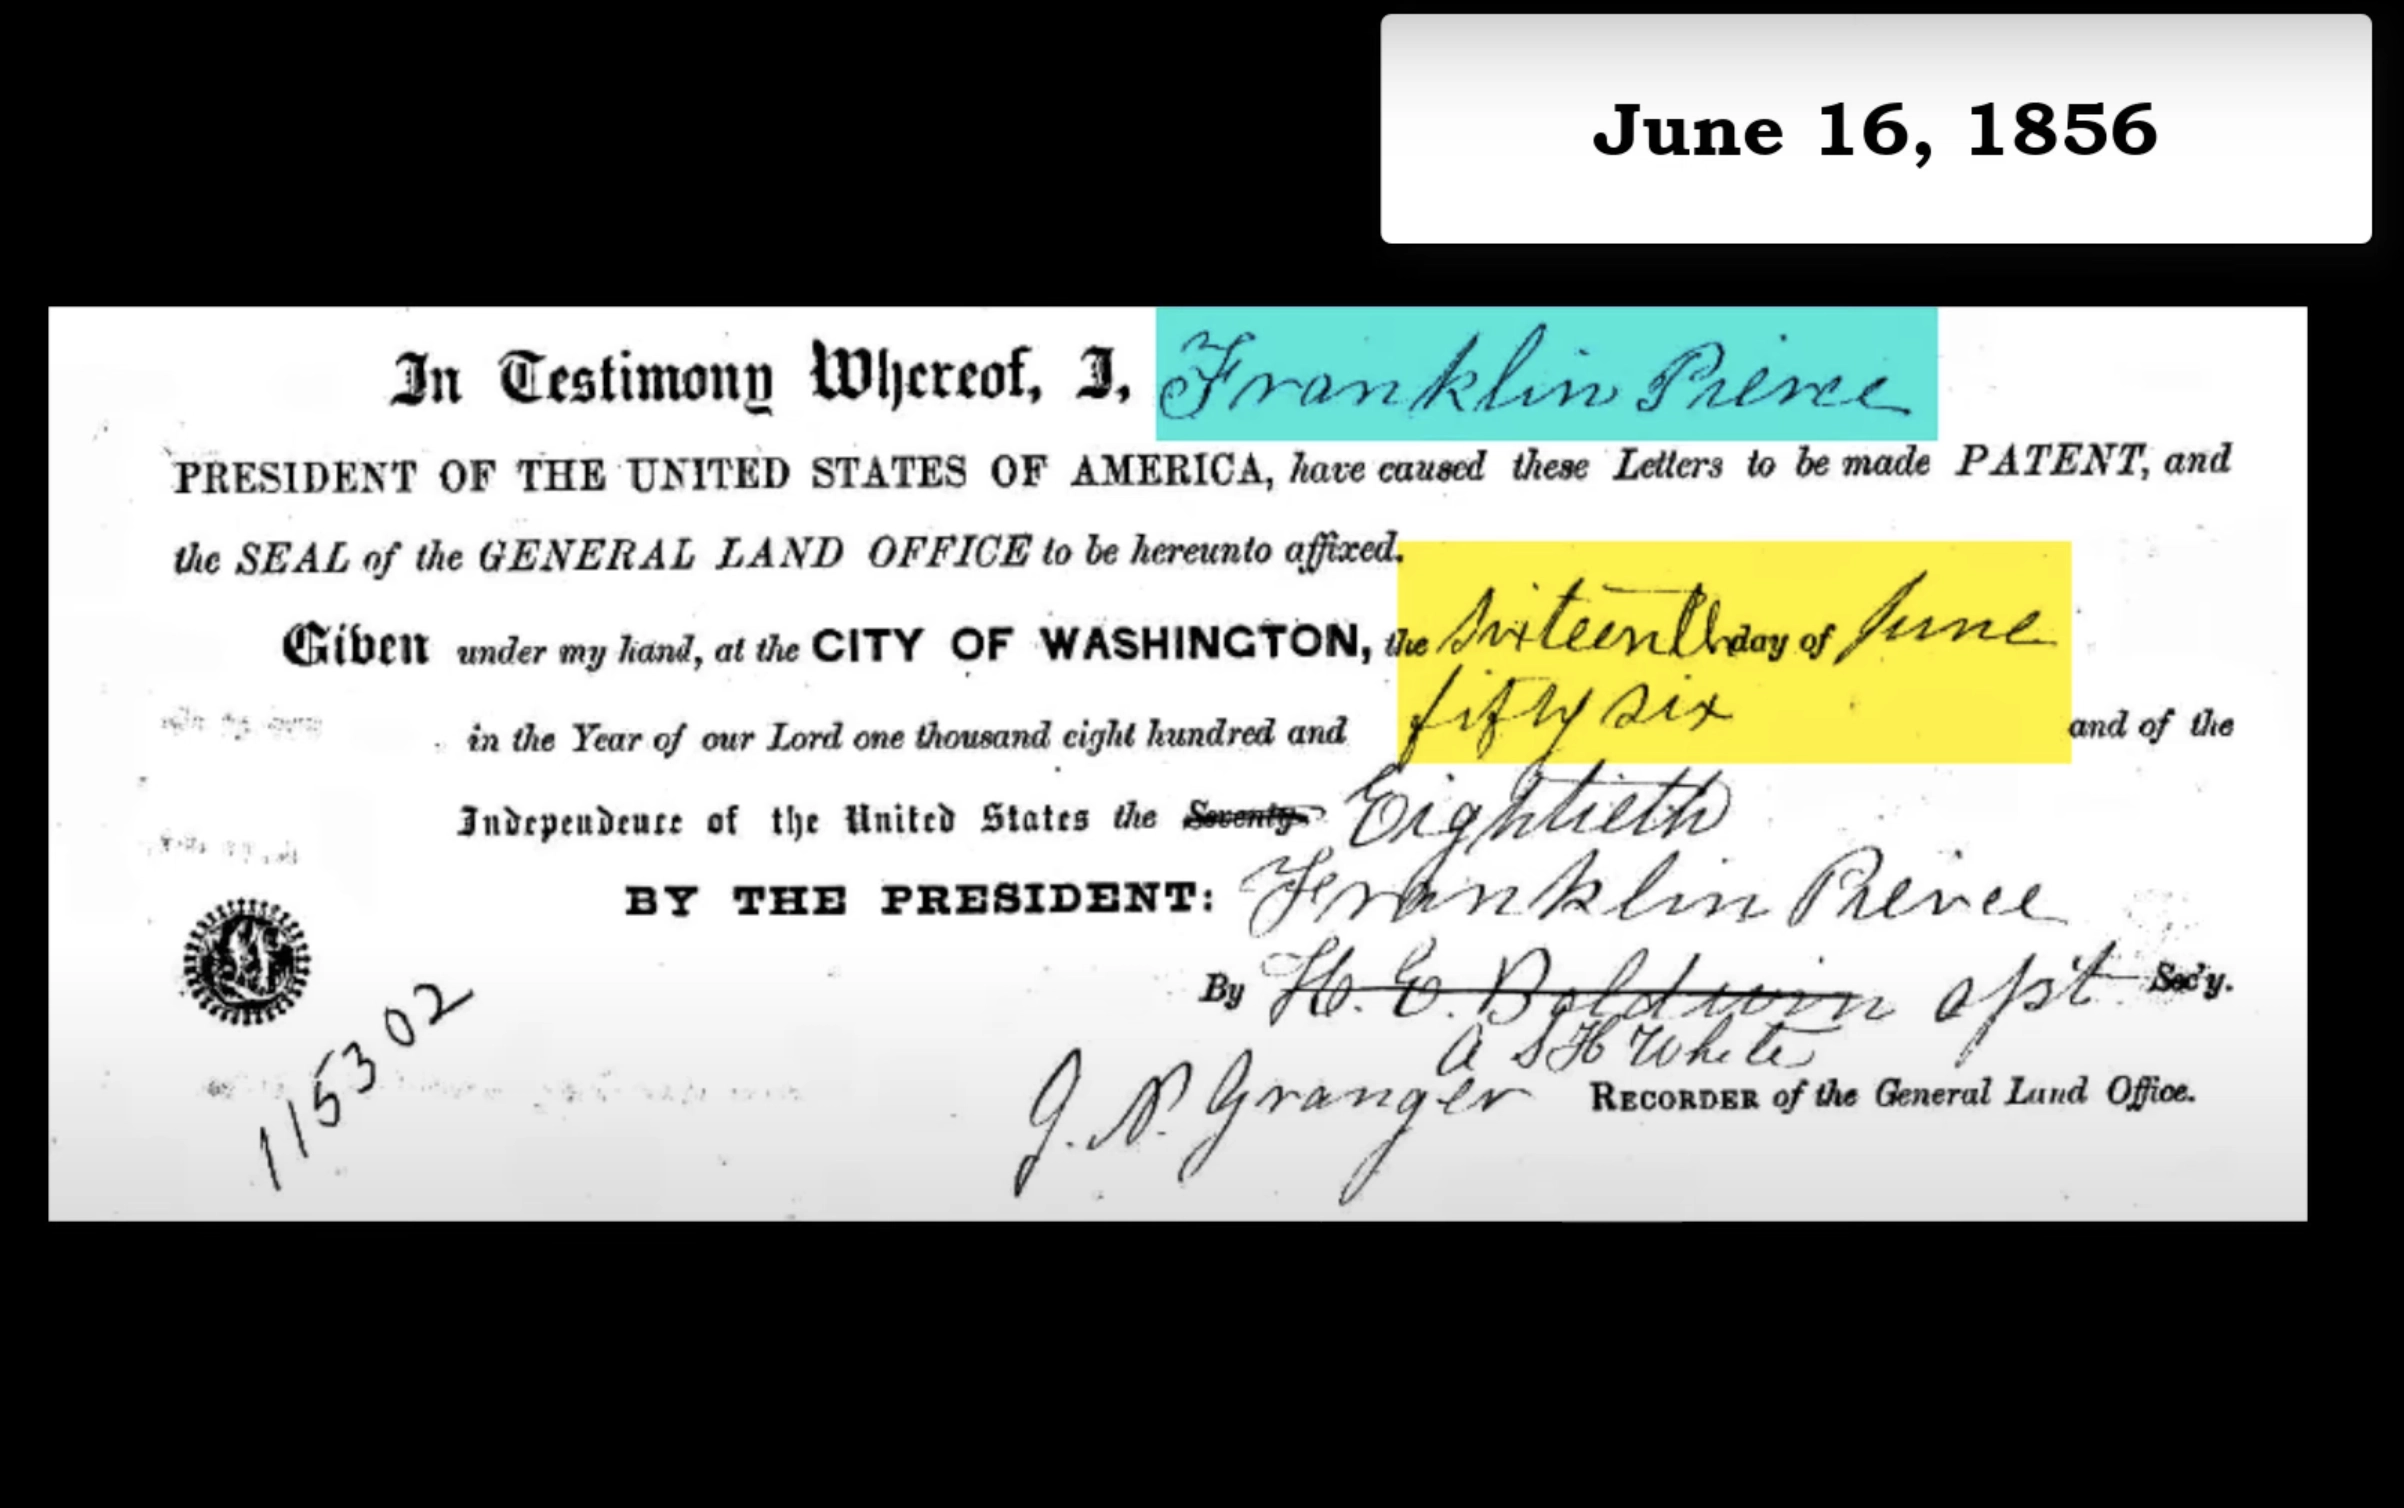 June 16, 1856
In Testimony Whereof, I, Franklin Pierce
PRESIDENT OF THE UNITED STATES OF AMERICA, have caused these Letters to be made PATENT, and
the SEAL of the GENERAL LAND OFFICE to be hereunto affixed.
Given under my hand, at the CITY OF WASHINGTON, the Sixteenth day of June
in the Year of our Lord one thousand eight hundred and fifty six and of the
Independence of the United States the Seventy- Eightieth
BY THE PRESIDENT: Franklin Pierce
By H. E. Baldwin ass't Sec'y.
A S H White
J. N. Granger RECORDER of the General Land Office.
115302